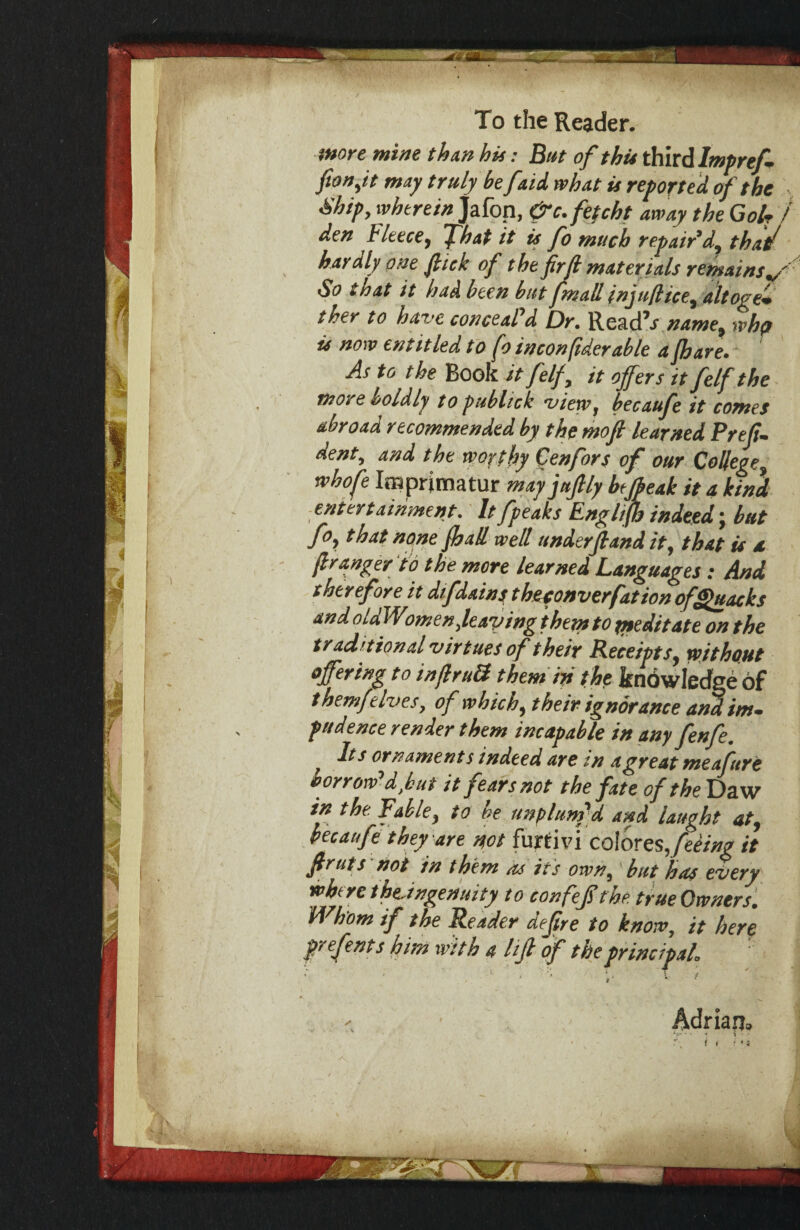 To the Reader.
more mine than his: But of this third Impreſ-
ſion, it may truly be ſaid what is reported of the
Ship, wherein Jaſon, &c. fetcht away the Gol-
den Fleece, That it is ſo much repair'd, that
hardly one ſtick of the firſt materials remains.
So that it had been but ſmall injuſtice, altoge-
ther to have conceal'd Dr. Read's name, who
is now entitled to ſo inconſiderable a ſhare.
As to the Book it ſelf, it offers it ſelf the
more boldly to publick view, becauſe it comes
abroad recommended by the moſt learned Preſi-
dent, and the worthy Cenſors of our College,
whoſe Imprimatur may juſtly beſpeak it a kind
entertainment. It ſpeaks Engliſh indeed; but
ſo, that none ſhall well underſtand it, that is a
ſtranger to the more learned Languages: And
therefore it diſdains the converſation of Quacks
and old Women, leaving them to meditate on the
traditional virtues of their Receipts, without
offering to inſtruct them in the knowledge of
themſelves, of which, their ignorance and im-
pudence render them incapable in any ſenſe.
Its ornaments indeed are in a great meaſure
borrow'd, but it fears not the fate of the Daw
in the Fable, to be unplum'd and laught at,
becauſe they are not furtivi colores, ſeeing it
ſtruts not in them as its own, but has every
where the ingenuity to confeſs the true Owners.
Whom if the Reader deſire to know, it here
preſents him with a liſt of the principal.
Adrian.